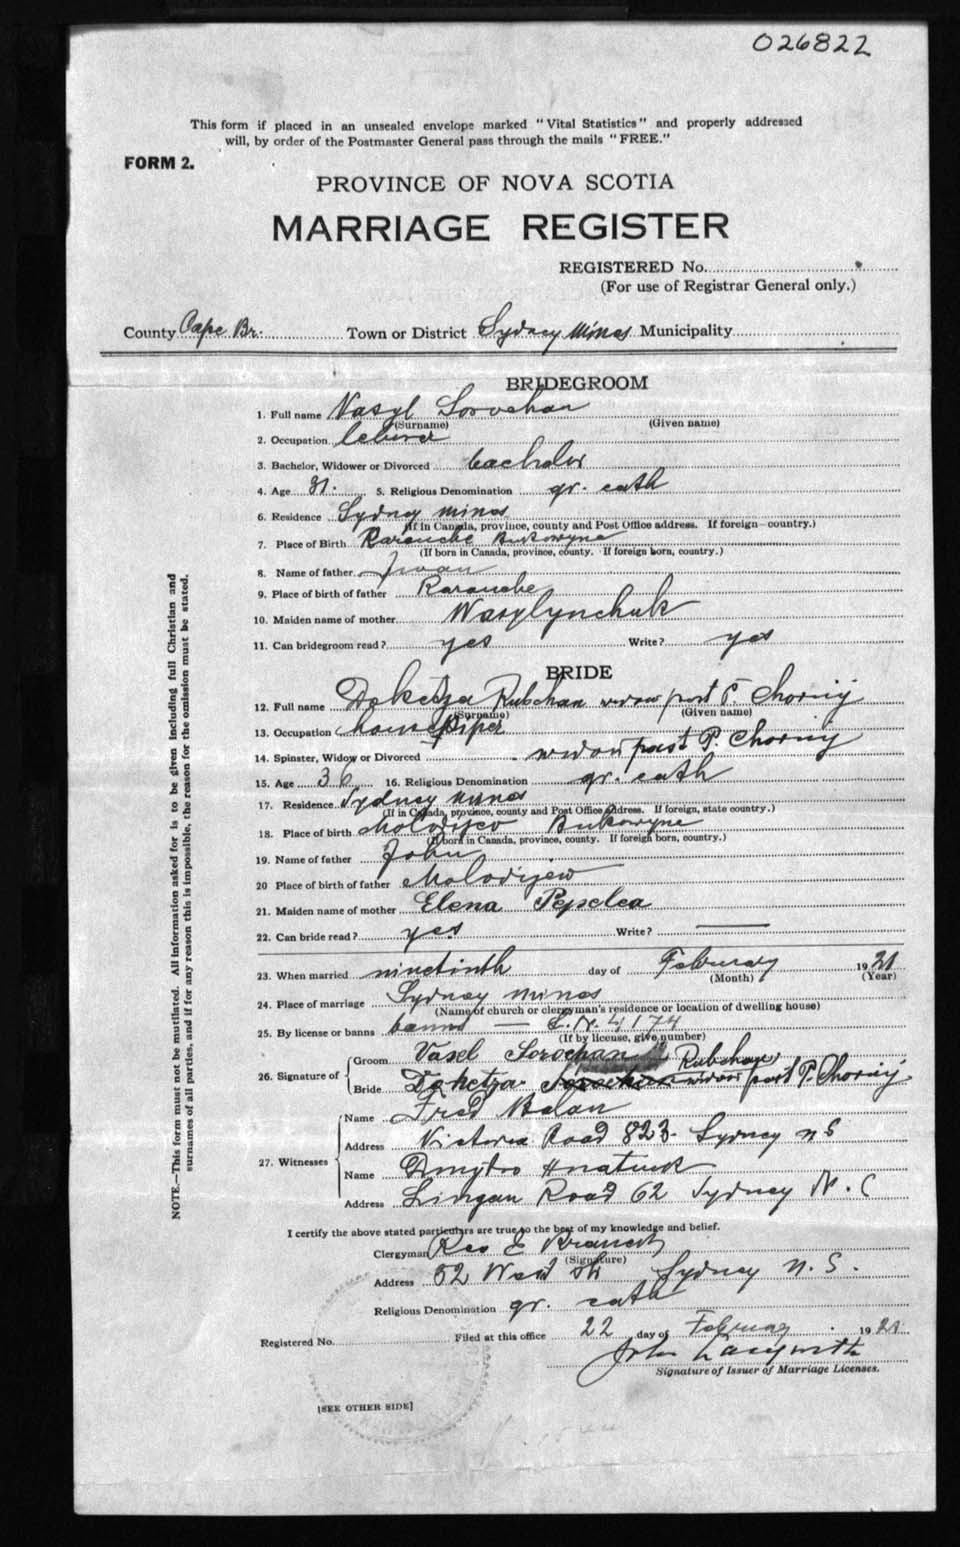 026822
This form if placed in an unsealed envelope marked "Vital Statistics" and properly addressed
will, by order of the Postmaster General pass through the mails "FREE."
FORM 2.
PROVINCE OF NOVA SCOTIA
MARRIAGE REGISTER
REGISTERED No.
(For use of Registrar General only.)
County Cape Br. Town or District Sydney Mines Municipality
BRIDEGROOM
1. Full name Vasyl Sorochan
(Surname) (Given name)
2. Occupation
3. Bachelor, Widower or Divorced bachelor
4. Age 31. 5. Religious Denomination gr. cath
6. Residence Sydney mines
(If in Canada, province, county and Post Office address. If foreign—country.)
7. Place of Birth Raranche Bukowyne
(If born in Canada, province, county. If foreign born, country.)
8. Name of father Iwan
9. Place of birth of father Raranche
10. Maiden name of mother Wasylynchuk
11. Can bridegroom read? yes Write? yes
BRIDE
12. Full name Doketza Rubchan widow post P. Chorniy
(Surname) (Given name)
13. Occupation housekiper
14. Spinster, Widow or Divorced widow post P. Chorniy
15. Age 36 16. Religious Denomination gr. cath
17. Residence Sydney mines
(If in Canada, province, county and Post Office address. If foreign, state country.)
18. Place of birth Bukowyne
(If born in Canada, province, county. If foreign born, country.)
19. Name of father John
20 Place of birth of father Molodijew
21. Maiden name of mother Elena Pepelea
22. Can bride read? yes Write? —
23. When married ninetinth day of February 1921
(Month) (Year)
24. Place of marriage Sydney mines
(Name of church or clergyman's residence or location of dwelling house)
25. By license or banns banns —
(If by license, give number)
26. Signature of
Groom Vasel Sorochan
Bride Doketza Rubchan widow post P. Chorniy
27. Witnesses
Name Fred Balan
Address Victoria Road 823 Sydney N S
Name Dmytro Hnatiuk
Address Lingan Road 62 Sydney N.
I certify the above stated particulars are true to the best of my knowledge and belief.
Clergyman Rev
(Signature)
Address 32 West Sydney N. S.
Religious Denomination gr. cath
Registered No. Filed at this office 22 day of February 1921
John
Signature of Issuer of Marriage Licenses.
[SEE OTHER SIDE]
NOTE.—This form must not be mutilated. All information asked for is to be given including full Christian and
surnames of all parties, and if for any reason this is impossible, the reason for the omission must be stated.